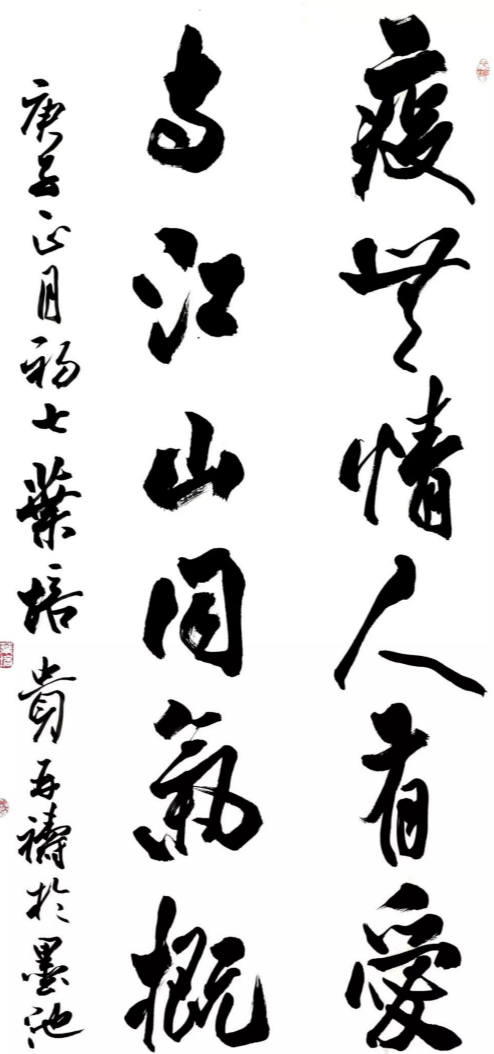 疫無情人有愛
与江山同氣概
庚子正月初七葉培貴再禱於墨池